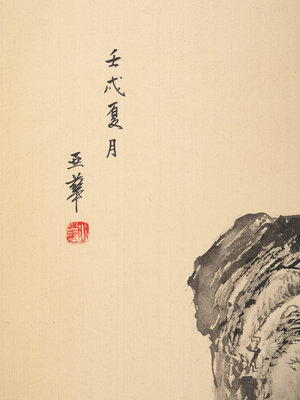 壬戌夏月
亚華